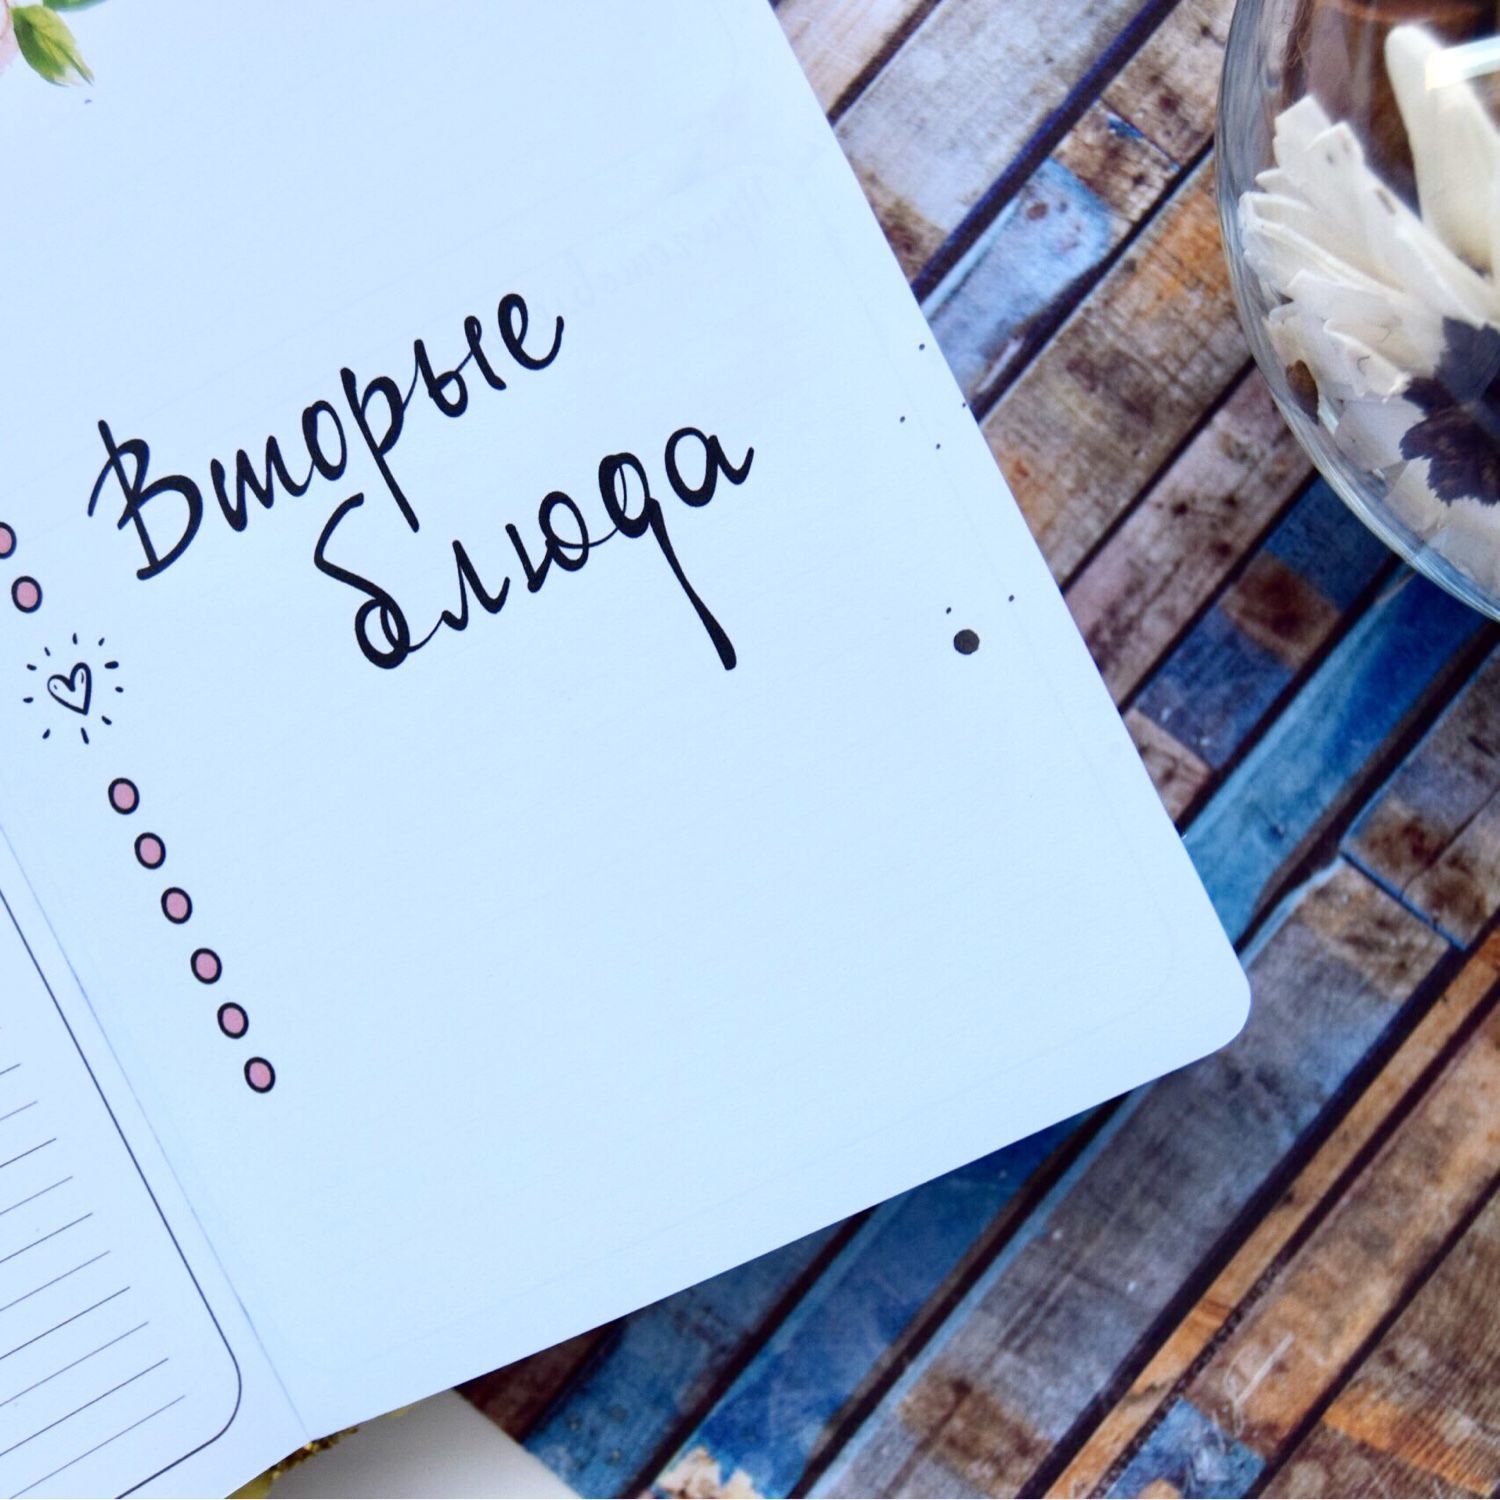 Вторые
блюда